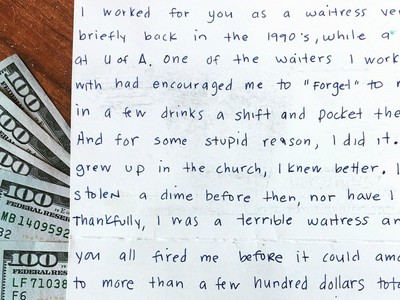 I worked for you as a waitress ve
briefly back in the 1990's, while a
at U of A. One of the waiters I work
with had encouraged me to "Forget" to r
in a few drinks a shift and pocket the
And for some stupid reason, I did it.
grew up in the church, I knew better. I
stolen a dime before then, nor have I
Thankfully, I was a terrible waitress an
you all fired me before it could amo
to more than a few hundred dollars tota
100
100
100
100
FEDERAL RESER
MB1409592
100
FEDERAL RESER
LF71038
F6